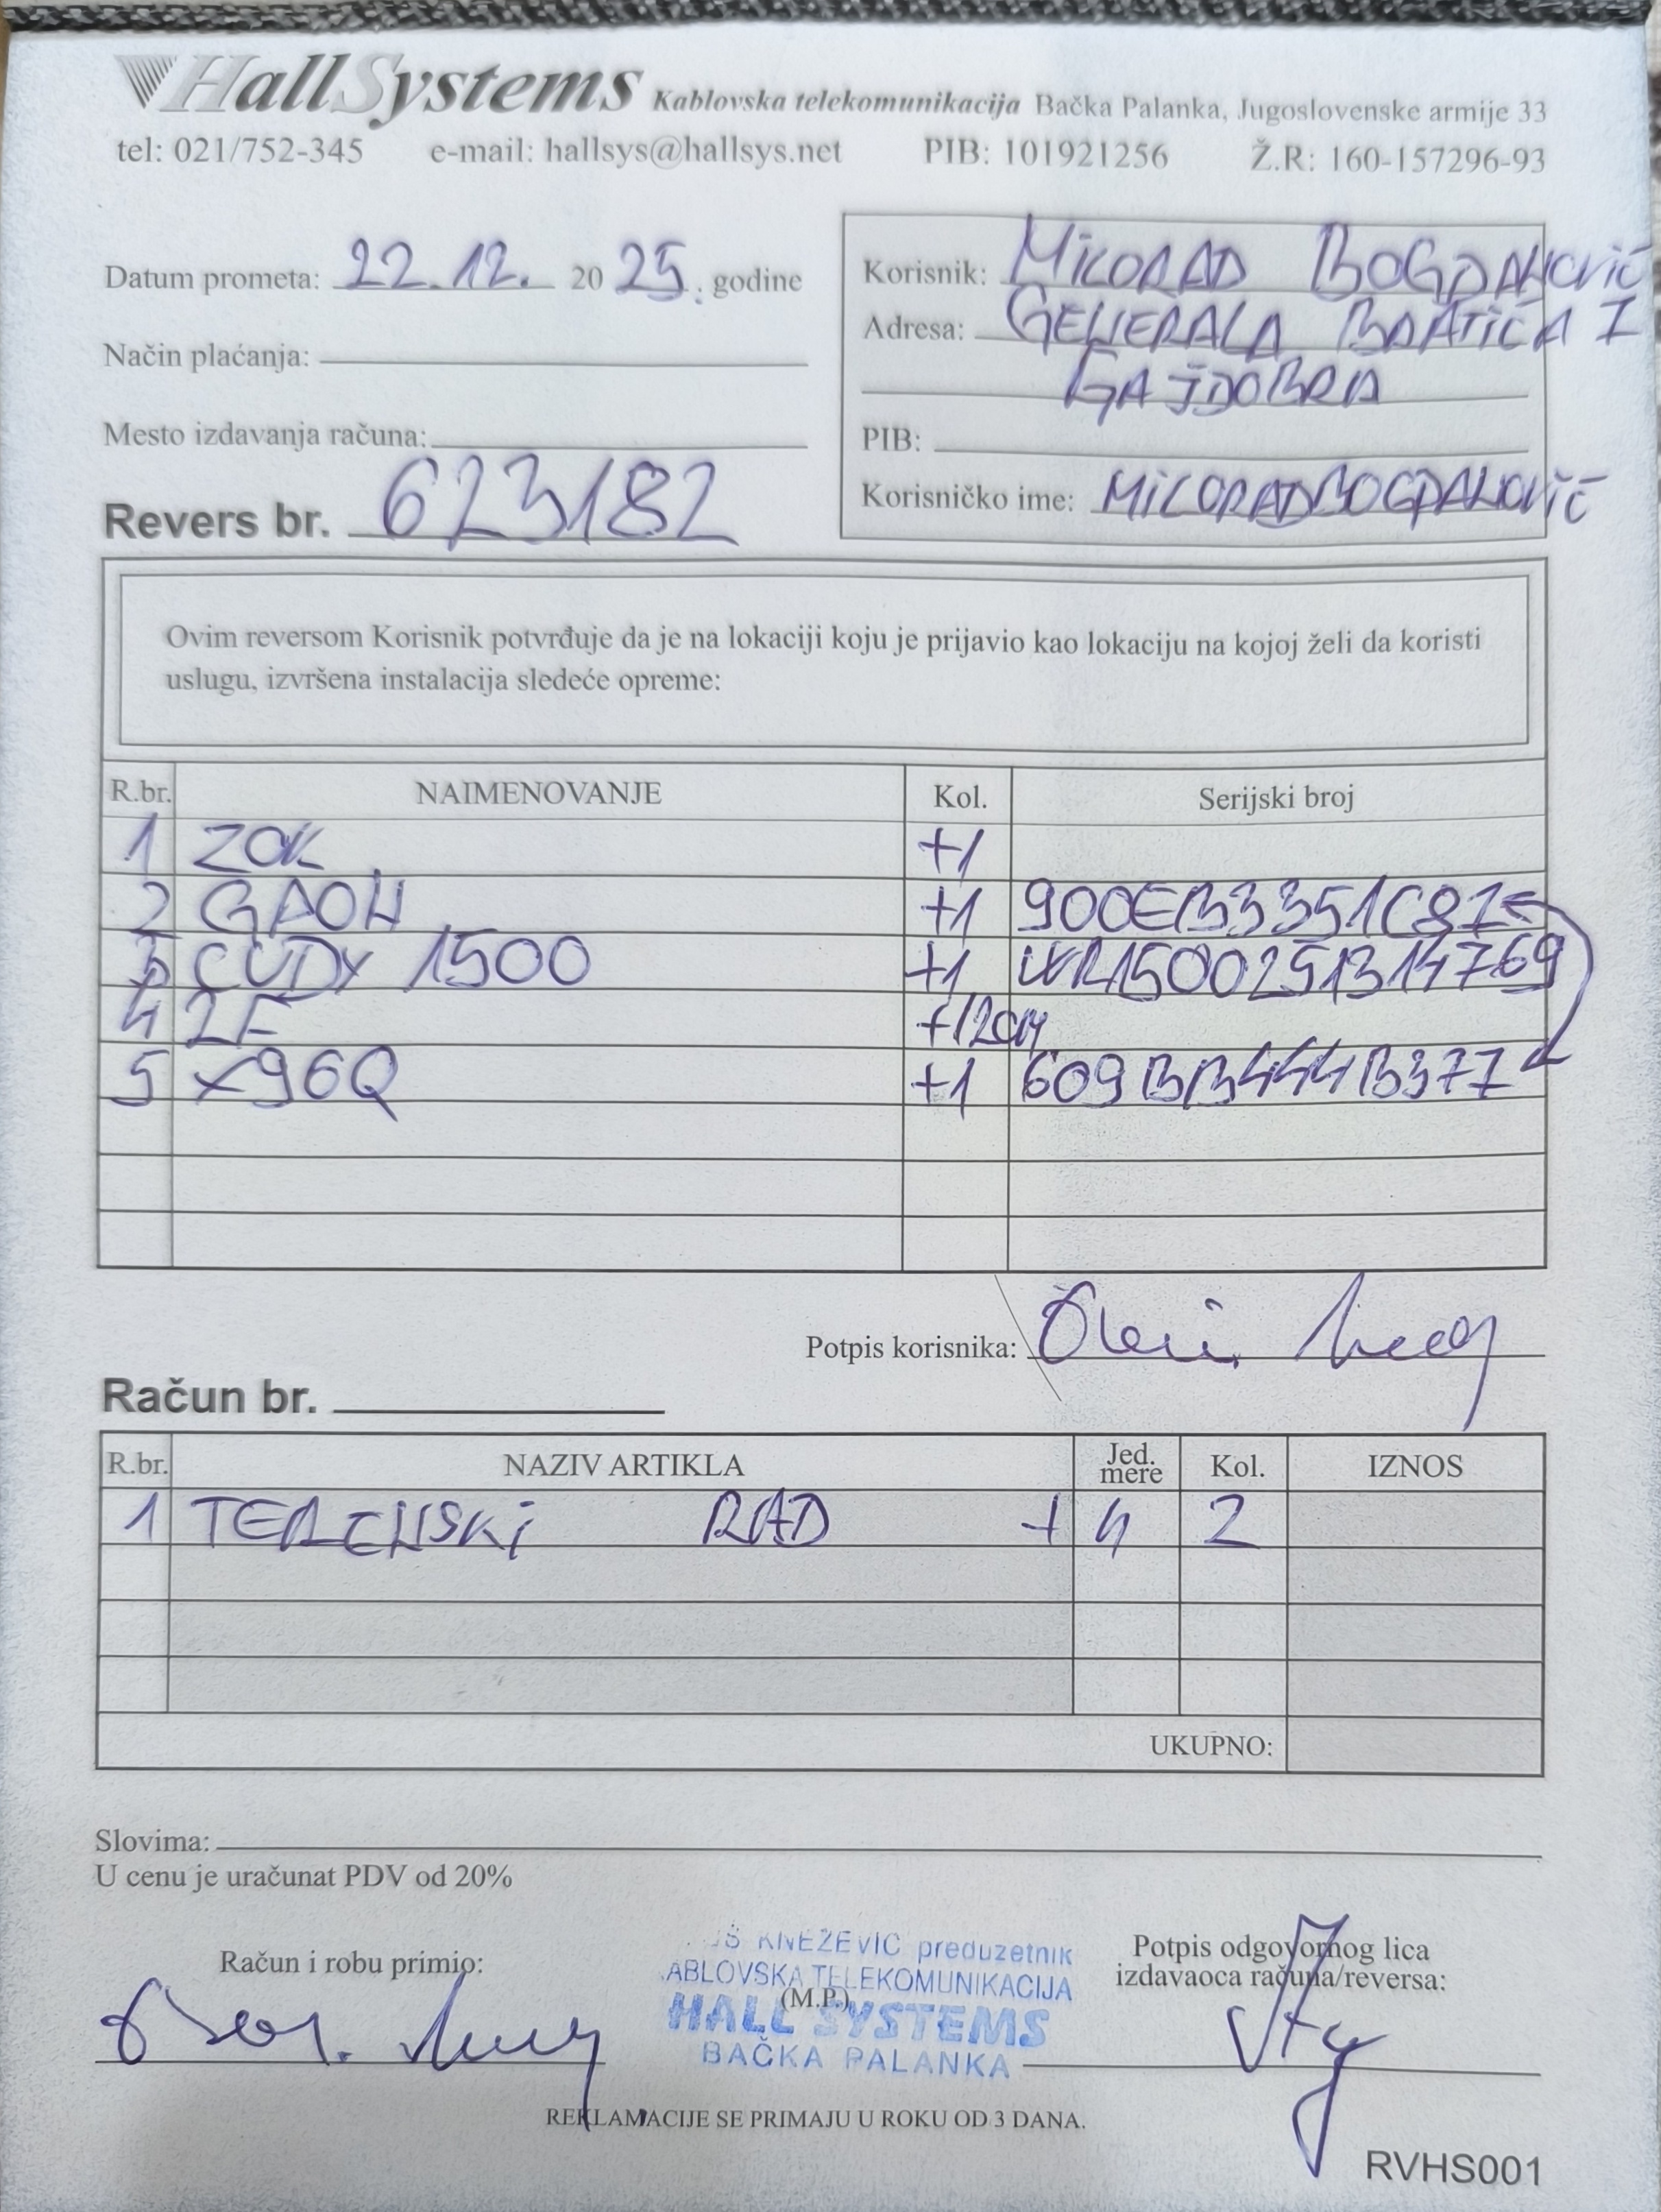 HallSystems Kablovska telekomunikacija Bačka Palanka, Jugoslovenske armije 33
tel: 021/752-345 e-mail: hallsys@hallsys.net PIB: 101921256 Ž.R: 160-157296-93
Datum prometa: 22.12. 2025. godine
Način plaćanja:
Mesto izdavanja računa:
Revers br. 623182
Korisnik: MILORAD BOGDANOVIĆ
Adresa: GENERALA BRATIĆA 1
GAJDOBRA
PIB:
Korisničko ime: MILORADBOGDANOVIĆ
Ovim reversom Korisnik potvrđuje da je na lokaciji koju je prijavio kao lokaciju na kojoj želi da koristi
uslugu, izvršena instalacija sledeće opreme:
R.br. NAIMENOVANJE Kol. Serijski broj
1 ZOK +1
2 GAON +1 900EB3351C87
3 CUDY 1500 +1 WR1500251314769
4 2F
5 X96Q +1 609BB444B377
Potpis korisnika:
Račun br.
R.br. NAZIV ARTIKLA Jed. mere Kol. IZNOS
1 TERENSKI RAD + H 2
UKUPNO:
Slovima:
U cenu je uračunat PDV od 20%
Račun i robu primio:
KNEŽEVIĆ preduzetnik
ABLOVSKA TELEKOMUNIKACIJA
(M.P.)
HALL SYSTEMS
BAČKA PALANKA
Potpis odgovornog lica
izdavaoca računa/reversa:
REKLAMACIJE SE PRIMAJU U ROKU OD 3 DANA.
RVHS001